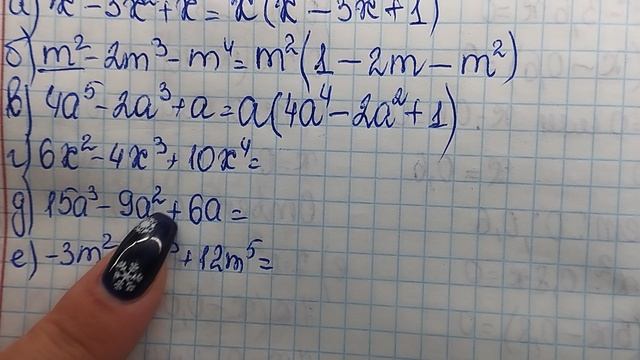 а) x - 3x² + x = x(x - 3x + 1)
б) m² - 2m³ - m⁴ = m²(1 - 2m - m²)
в) 4a⁵ - 2a³ + a = a(4a⁴ - 2a² + 1)
г) 6x² - 4x³ + 10x⁴ =
д) 15a³ - 9a² + 6a =
е) -3m² ³ + 12m⁵ =